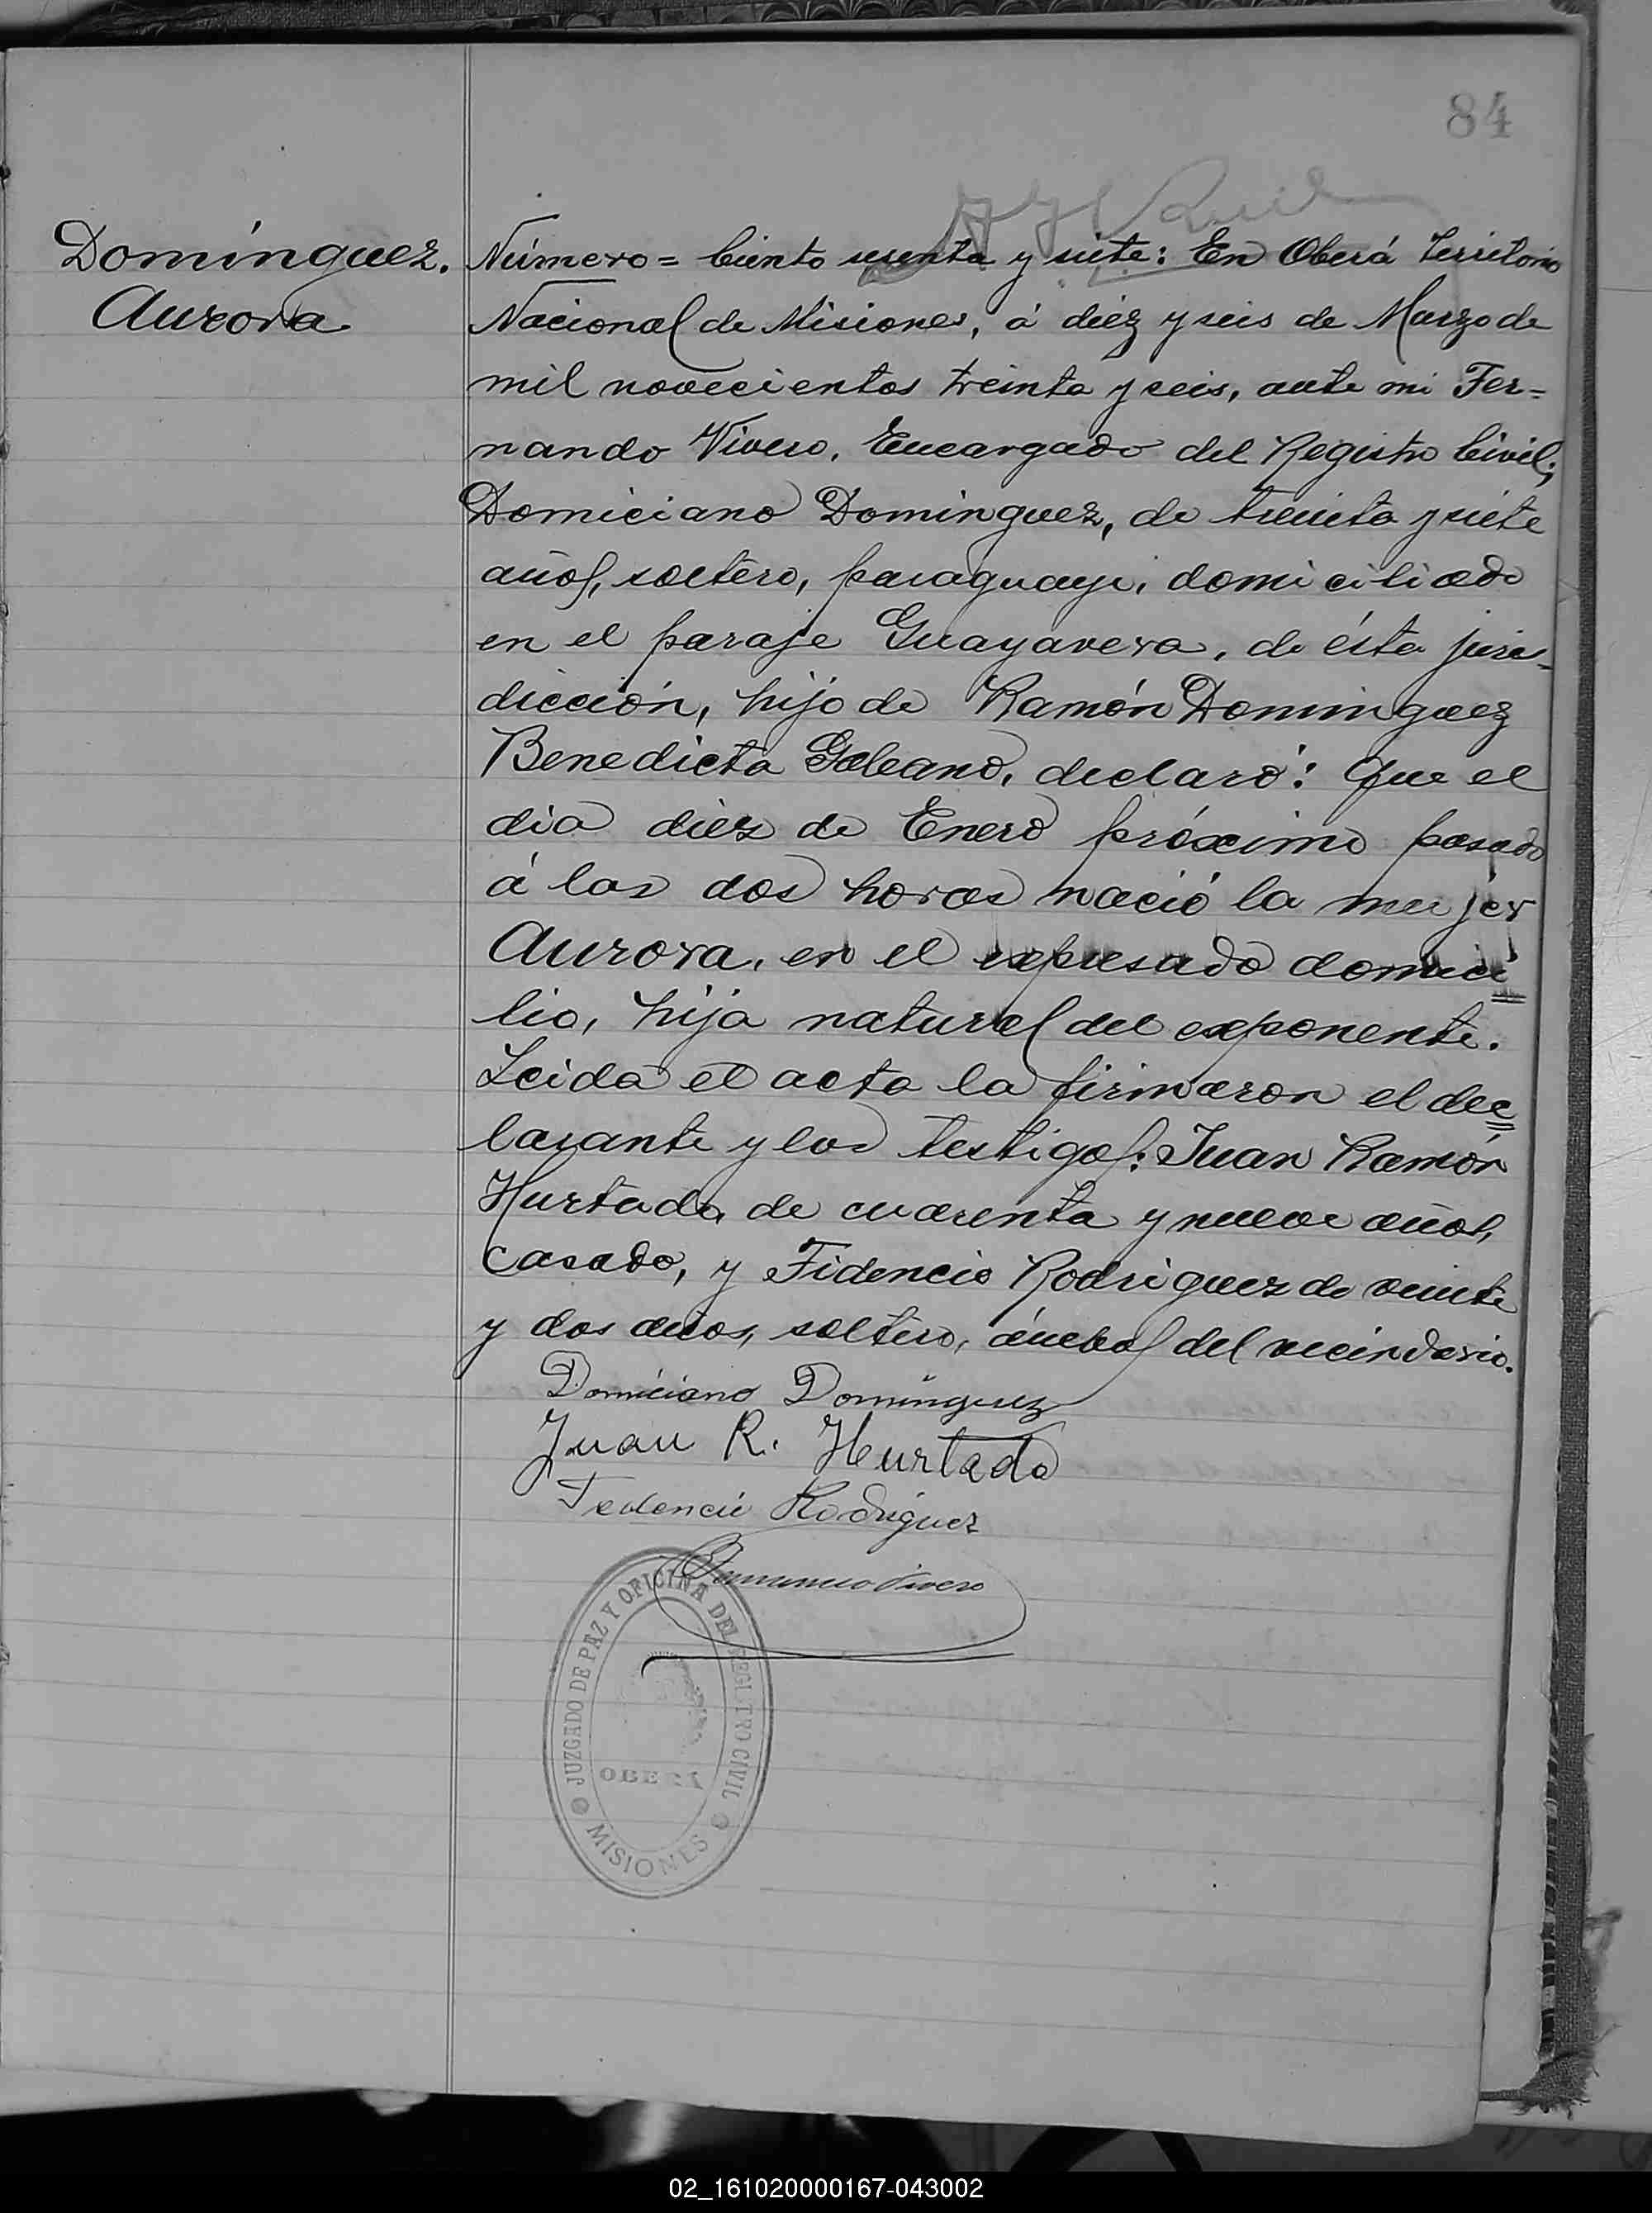 84
Domínguez.
Aurora
Número = Ciento sesenta y siete: En Oberá Territorio
Nacional de Misiones, á diéz y seis de Marzo de
mil novecientos treinta y seis, ante mi Fer=
nando Vivero, Encargado del Registro Civil;
Domiciano Dominguez, de treinta y siete
años, soltero, paraguayo, domiciliado
en el paraje Guayavera, de ésta juris-
dicción, hijo de Ramón Dominguez
Benedicta Galeano, declaró: Que el
dia diéz de Enero próximo pasado
á las dos horas nació la mujer
Aurora, en el expresado domici
lio, hija natural del exponente.
Leida el acta la firmaron el dec
larante y los testigos: Juan Ramón
Hurtado, de cuarenta y nueve años,
casado, y Fidencio Rodriguez de veinte
y dos años, soltero, ámbos del vecindario.
Domiciano Domínguez
Juan R. Hurtado
Fedencio Rodriguez
Fernando Vivero
JUZGADO DE PAZ Y OFICINA DEL REGISTRO CIVIL
OBERÁ
MISIONES
02_161020000167-043002